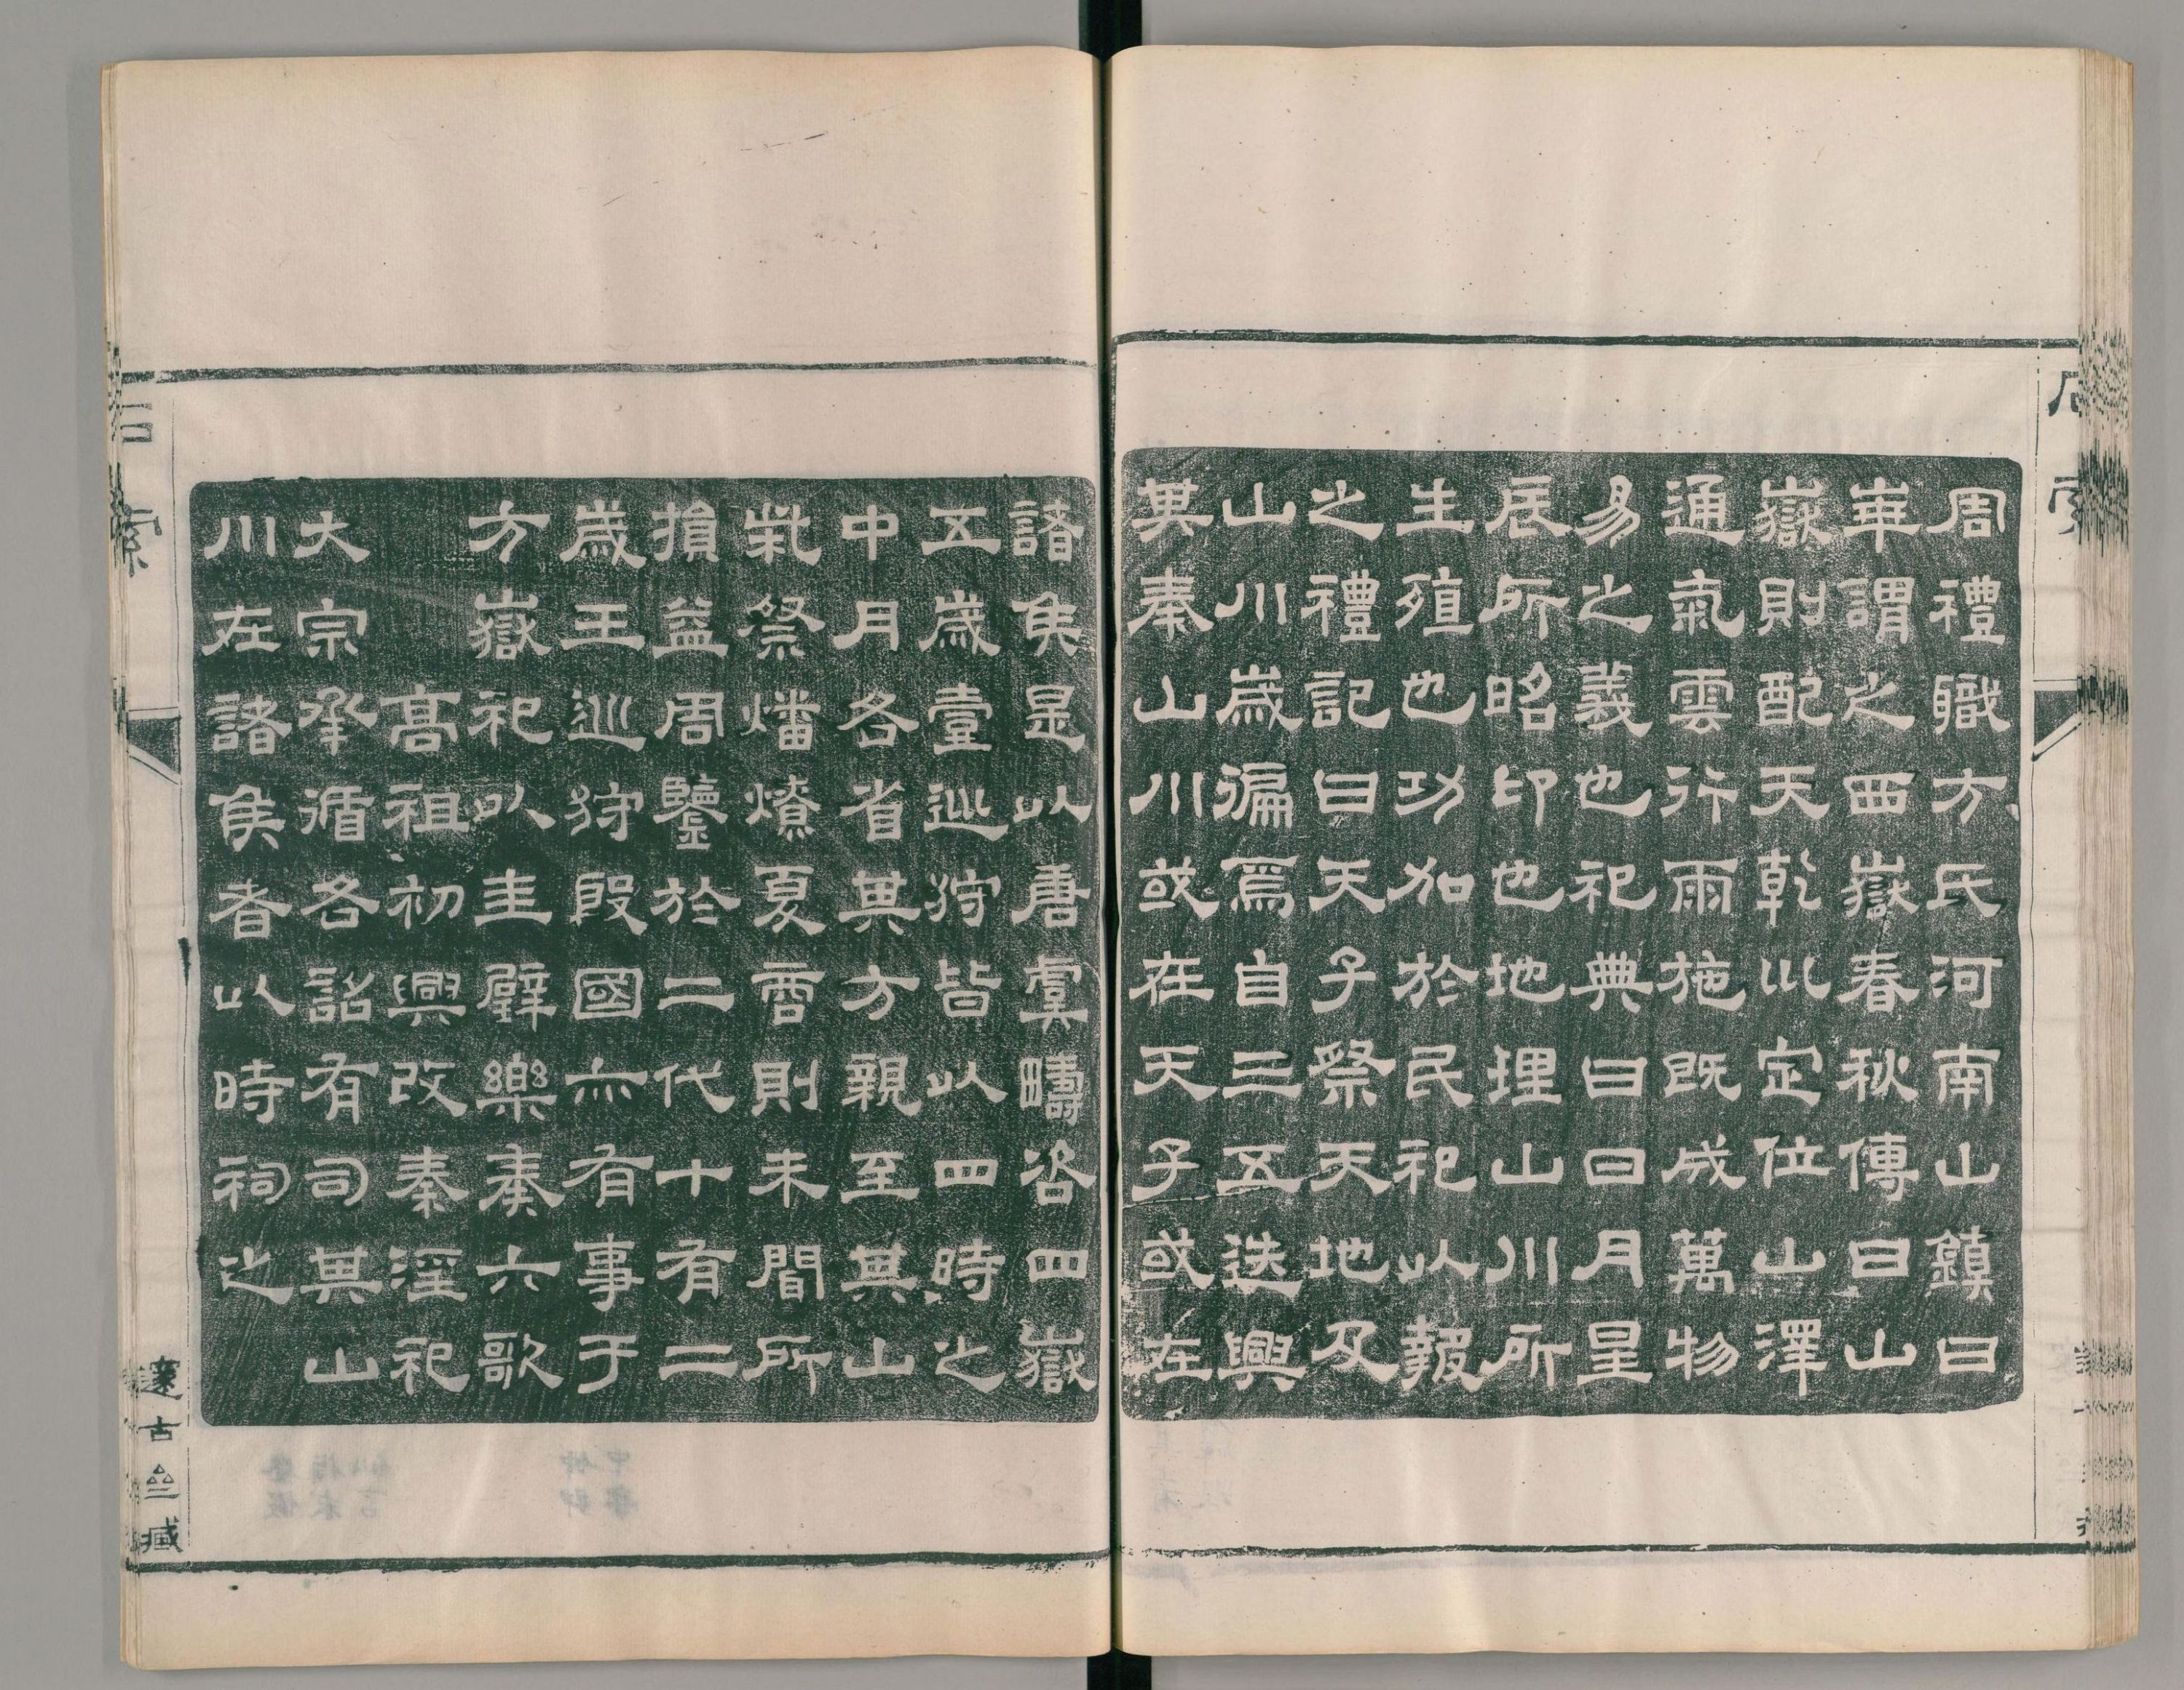 周禮職方氏河南山鎮曰
崋謂之西嶽春秋傳曰山
嶽則配天乾㠯定位山澤
通氣雲行雨施既成萬物
易之義也祀典曰日月星
辰所昭卬也地理山川所
生殖也功加於民祀以報
之禮記曰天子祭天地及
山川歲徧焉自三五迭興
其奉山川或在天子或在
諸侯是以唐虞疇咨四嶽
五歲壹巡狩皆以四時之
中月各省其方親至其山
柴祭燔燎夏商則未聞所
損益周鑒於二代十有二
歲王巡狩殷國亦有事于
方嶽祀以圭璧樂奏六歌
高祖初興改秦淫祀
大宗承循各詔有司其山
川在諸侯者以時祠之
石索
邃古齋藏